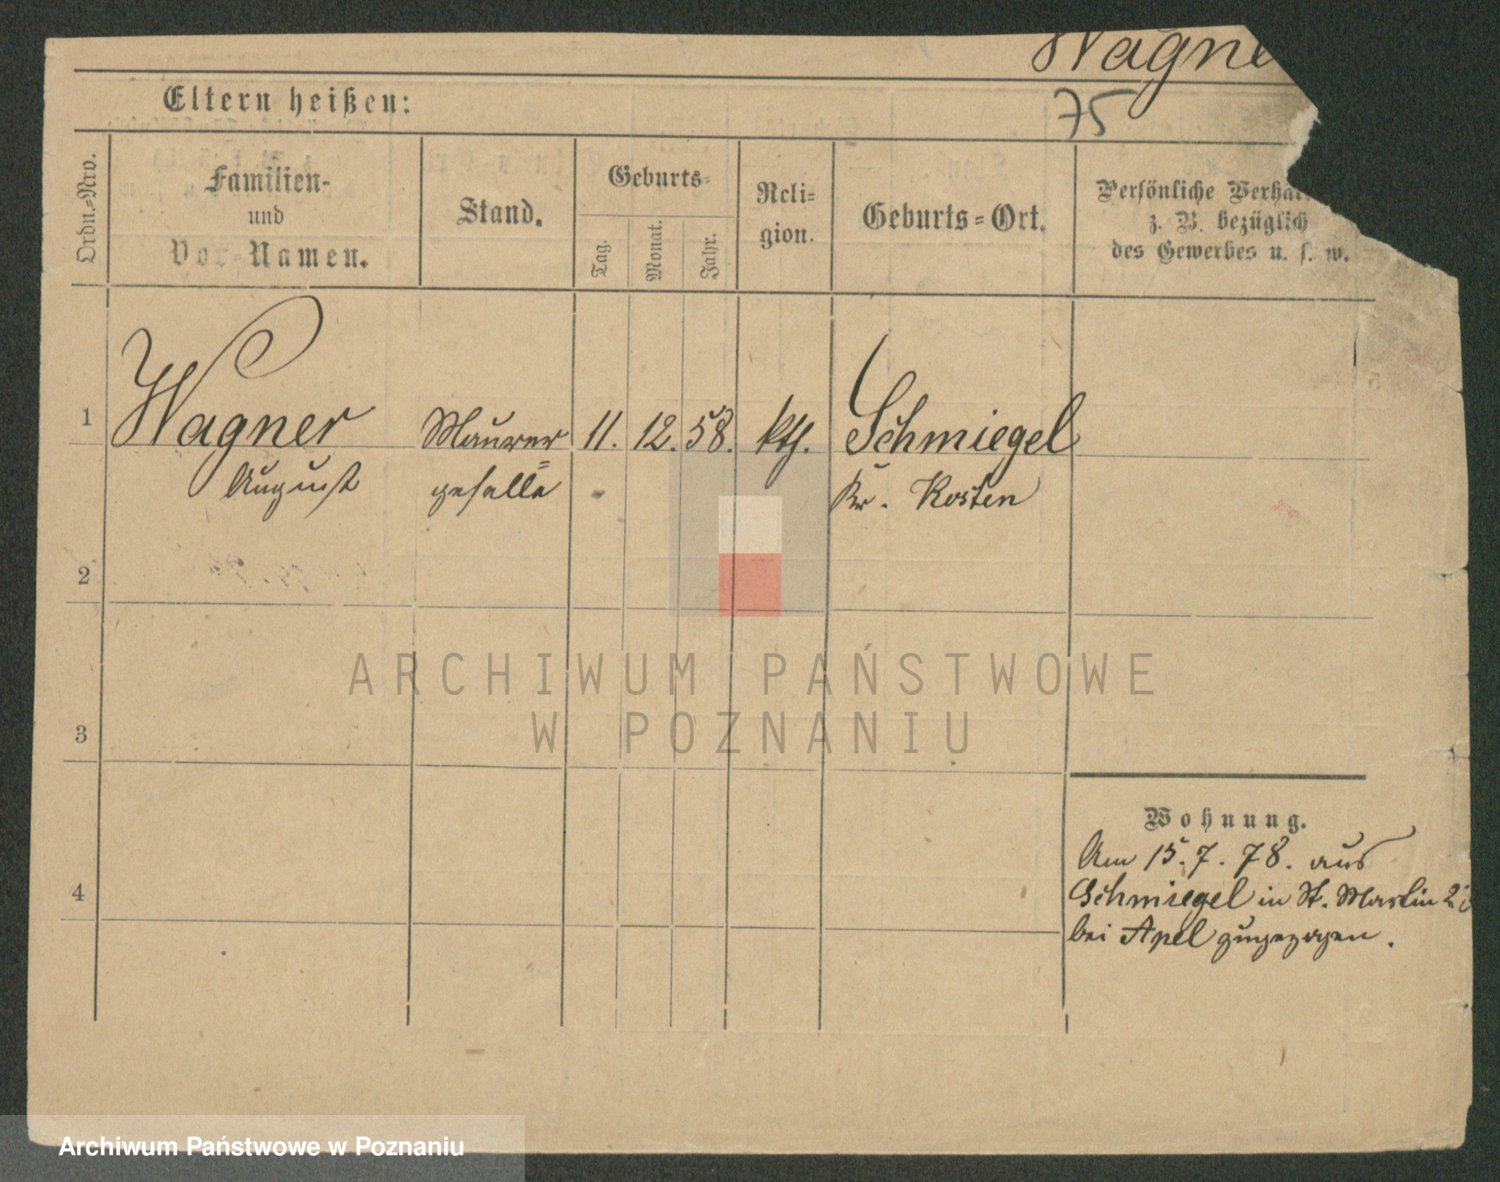 Wagne
75
Eltern heißen:
Ordn.-Nro.
Familien-
und
Vor-Namen.
Stand.
Geburts-
Tag.
Monat.
Jahr.
Reli-
gion.
Geburts-Ort.
Persönliche Verhäl
z. B. bezüglich
des Gewerbes u. s. w.
1 Wagner Maurer 11. 12. 58. kth. Schmiegel
August geselle Kr. Kosten
2
3
4
Wohnung.
Am 15. 7. 78. aus
Schmiegel in St. Martin
bei Apel zugezogen.
ARCHIWUM PAŃSTWOWE
W POZNANIU
Archiwum Państwowe w Poznaniu